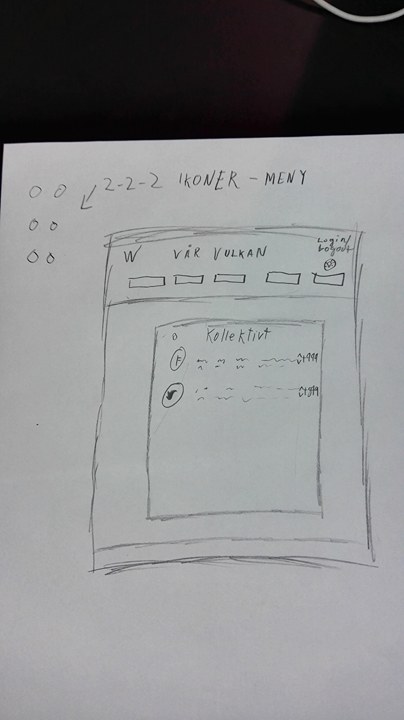 2-2-2 IKONER - MENY
W VÅR VULKAN Login/
Logout
Kollektivt